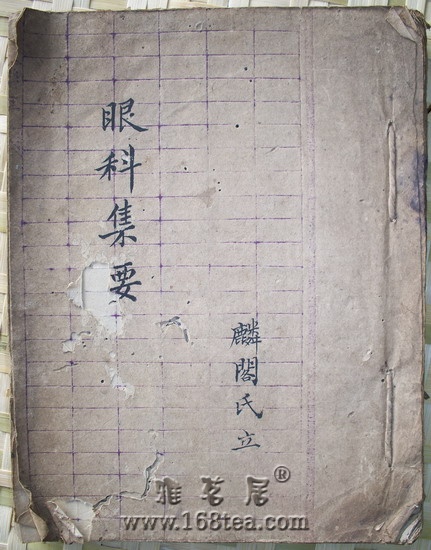 眼科集要
麟閣氏立
雅茗居®
www.168tea.com